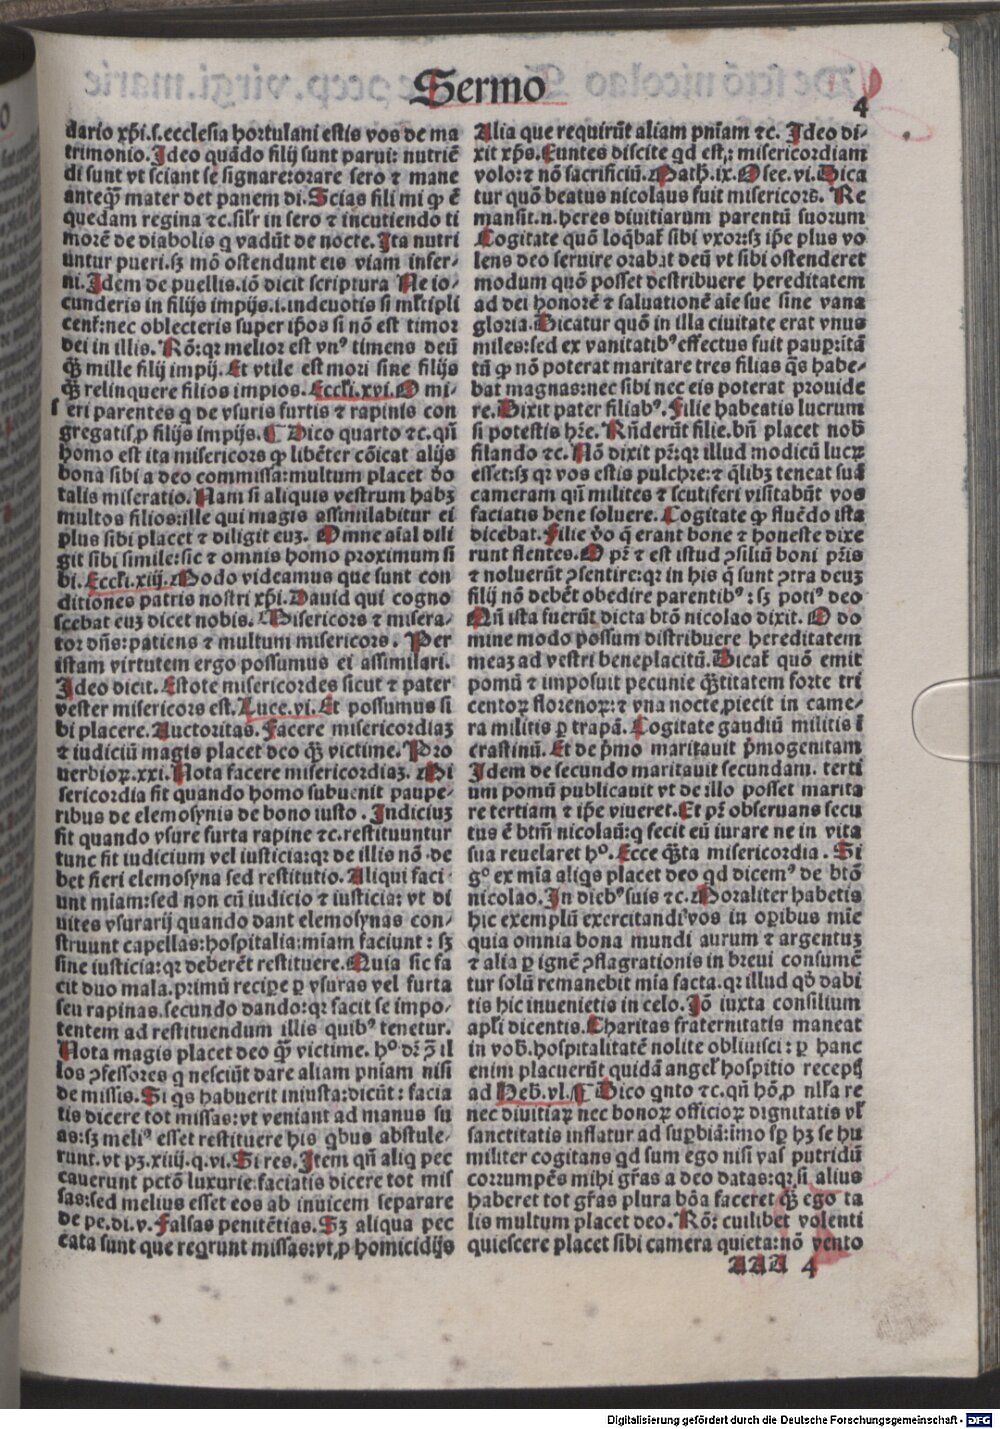 Sermo
4
dario xp̄i.ſ.ecclesia hortulani estis vos de ma
trimonio. Ideo quādo filij sunt parui: nutriē
di sunt vt sciant se signare: orare sero ⁊ mane
anteq̄ȝ mater det panem di. Scias fili mi ꝙ ē
quedam regina ⁊c. sil'r in sero ⁊ incutiendo ti
morē de diabolis q̄ vadūt de nocte. Ita nutri
untur pueri. sȝ mō ostendunt eis viam infer-
ni. Idem de puellis. iō dicit scriptura Ne io-
cunderis in filijs impijs. i. indeuotis si ml'tipli
cent̄: nec oblecteris super ip̄os si nō est timor
dei in illis. Rō: qr melior est vnꝰ timens deū
q̄ȝ mille filij impij. Et vtile est mori sine filijs
q̄ȝ relinquere filios impios. Eccl'i.xvi. O mi-
seri parentes q̄ de vsuris furtis ⁊ rapinis con
gregatis ꝓ filijs impijs. ¶ Dico quarto ⁊c. qn̄
homo est ita misericors ꝙ libēter cōicat alijs
bona sibi a deo commissa: multum placet dō
talis miseratio. Nam si aliquis vestrum habȝ
multos filios: ille qui magis assimilabitur ei
plus sibi placet ⁊ diligit euȝ. Omne aīal dili
git sibi simile: sic ⁊ omnis homo proximum si
bi. Eccl'i.xiij. Modo videamus que sunt con
ditiones patris nostri xp̄i. Dauid qui cogno
scebat euȝ dicet nobis. Misericors ⁊ misera-
tor dn̄s: patiens ⁊ multum misericors. Per
istam virtutem ergo possumus ei assimilari.
Ideo dicit. Estote misericordes sicut ⁊ pater
vester misericors est. Luce.vi. Et possumus si
bi placere. Auctoritas. Facere misericordiaȝ
⁊ iudiciū magis placet deo q̄ȝ victime. Pro
uerbioꝝ.xxi. Nota facere misericordiaȝ. Mi
sericordia fit quando homo subuenit paupe-
ribus de elemosynis de bono iusto. Iudiciuȝ
fit quando vsure furta rapine ⁊c. restituuntur
tunc fit iudicium vel iusticia: qr de illis nō de
bet fieri elemosyna sed restitutio. Aliqui faci
unt miam: sed non cū iudicio ⁊ iusticia: vt di
uites vsurarij quando dant elemosynas con-
struunt capellas: hospitalia: miam faciunt: sȝ
sine iusticia: qr deberēt restituere. Quia sic fa
cit duo mala. primū recipe ꝑ vsuras vel furta
seu rapinas. secundo dando: qr facit se impo-
tentem ad restituendum illis quibꝰ tenetur.
Nota magis placet deo q̄ȝ victime. hº dr̄ ꝯ il
los ꝯfessores q̄ nesciūt dare aliam pn̄iam nisi
de missis. Si qs habuerit iniusta: dicūt: facia
tis dicere tot missas: vt veniant ad manus su
as: sȝ meliꝰ esset restituere his qbus abstule-
runt. vt pȝ.xiiij.q.vi. Si res. Item qn̄ aliq̄ pec
cauerunt pctō luxurie: faciatis dicere tot mis
sas: sed melius esset eos ab inuicem separare
de pe.di.v. Falsas penitētias. Sȝ aliqua pec
cata sunt que reqrunt missas: vt ꝓ homicidijs
Alia que requirūt aliam pn̄iam ⁊c. Ideo di-
xit xp̄s. Euntes discite qd est: misericordiam
volo: ⁊ nō sacrificiū. Math.ix. Osee.vi. Dica
tur quō beatus nicolaus fuit misericors. Re
mansit.n. heres diuitiarum parentū suorum
Cogitate quō loq̄bat̄ sibi vxor: sȝ ip̄e plus vo
lens deo seruire orabat deū vt sibi ostenderet
modum quō posset destribuere hereditatem
ad dei honorē ⁊ saluationē aīe sue sine vana
gloria. Dicatur quō in illa ciuitate erat vnus
miles: sed ex vanitatibꝰ effectus fuit pauꝑ: itā
tū ꝙ nō poterat maritare tres filias q̄s habe-
bat magnas: nec sibi nec eis poterat prouide
re. Dixit pater filiabꝰ. Filie habeatis lucrum
si potestis hr̄e. Rn̄derūt filie. bn̄ placet nob̄
filando ⁊c. Nō dixit pr̄: qr illud modicū lucꝝ
esset: sȝ qr vos estis pulchre: ⁊ q̄libȝ teneat suā
cameram qn̄ milites ⁊ scutiferi visitabūt vos
faciatis bene soluere. Cogitate ꝙ fluēdo ista
dicebat. Filie v̄o q̄ erant bone ⁊ honeste dixe
runt flentes. O pr̄ ⁊ est istud ꝯsiliū boni pr̄is
⁊ noluerūt ꝯsentire: qr in his q̄ sunt ꝯtra deuȝ
filij nō debēt obedire parentibꝰ: sȝ potiꝰ deo
Qn̄ ista fuerūt dicta btō nicolao dixit. O do
mine modo possum distribuere hereditatem
meaȝ ad vestri beneplacitū. Dicat̄ quō emit
pomū ⁊ imposuit pecunie q̄ȝtitatem forte tri
centoꝝ florenoꝝ: ⁊ vna nocte ꝓiecit in came-
ra militis ꝑ trapā. Cogitate gaudiū militis ī
crastinū. Et de p̄mo maritauit p̄mogenitam
Idem de secundo maritauit secundam. terti
um pomū publicauit vt de illo posset marita
re tertiam ⁊ ip̄e viueret. Et pr̄ obseruans secu
tus ē btm̄ nicolaū: q̄ fecit eū iurare ne in vita
sua reuelaret hº. Ecce q̄ȝta misericordia. Si
gº ex mia aliqs placet deo qd dicemꝰ de btō
nicolao. In diebꝰ suis ⁊c. Moraliter habetis
hic exemplū exercitandi vos in oꝑibus mīe
quia omnia bona mundi aurum ⁊ argentuȝ
⁊ alia ꝑ ignē ꝯflagrationis in breui consumē
tur solū remanebit mia facta. qr illud qd̄ dabi
tis hic inuenietis in celo. Iō iuxta consilium
apl'i dicentis. Charitas fraternitatis maneat
in vob̄. hospitalitatē nolite obliuisci: ꝑ hanc
enim placuerūt quidā angel' hospitio receptꝭ
ad Heb̄.vl. ¶ Dico qnto ⁊c. qn̄ hō ꝓ nl'la re
nec diuitiaꝝ nec bonoꝝ officioꝝ dignitatis vl'
sanctitatis inflatur ad suꝑbiā: imo sꝑ hȝ se hu
militer cogitans qd sum ego nisi vas putridū
corrumpēs mihi gr̄as a deo datas: qr si alius
haberet tot gr̄as plura bōa faceret q̄ȝ ego ta
lis multum placet deo. Rō: cuilibet volenti
quiescere placet sibi camera quieta: nō vento
AAA 4
Digitalisierung gefördert durch die Deutsche Forschungsgemeinschaft - DFG